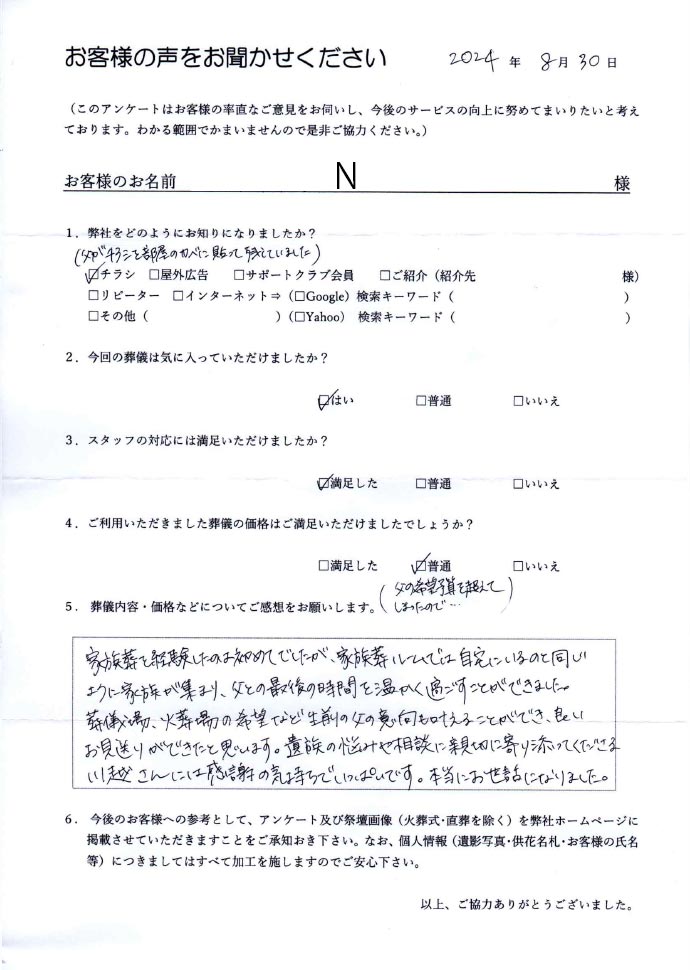 お客様の声をお聞かせください　2024 年 8月 30 日
（このアンケートはお客様の率直なご意見をお伺いし、今後のサービスの向上に努めてまいりたいと考え
ております。わかる範囲でかまいませんので是非ご協力ください。）
お客様のお名前　N　様
1．弊社をどのようにお知りになりましたか？
（父がチラシを部屋のカベに貼って残していました）
☑チラシ　□屋外広告　□サポートクラブ会員　□ご紹介（紹介先　　様）
□リピーター　□インターネット⇒（□Google）検索キーワード（　　）
□その他（　　）（□Yahoo）　検索キーワード（　　）
2．今回の葬儀は気に入っていただけましたか？
☑はい　□普通　□いいえ
3．スタッフの対応には満足いただけましたか？
☑満足した　□普通　□いいえ
4．ご利用いただきました葬儀の価格はご満足いただけましたでしょうか？
□満足した　☑普通　□いいえ
（父の希望予算を超えて
しまったので…）
5．葬儀内容・価格などについてご感想をお願いします。
家族葬を経験したのは初めてでしたが、家族葬ルームでは自宅にいるのと同じ
ように家族が集まり、父との最後の時間を温かく過ごすことができました。
葬儀場、火葬場の希望など生前の父の意向も叶えることができ、良い
お見送りができたと思います。遺族の悩みや相談に親切に寄り添ってくださる
川越さんには感謝の気持ちでいっぱいです。本当にお世話になりました。
6．今後のお客様への参考として、アンケート及び祭壇画像（火葬式・直葬を除く）を弊社ホームページに
掲載させていただきますことをご承知おき下さい。なお、個人情報（遺影写真・供花名札・お客様の氏名
等）につきましてはすべて加工を施しますのでご安心下さい。
以上、ご協力ありがとうございました。